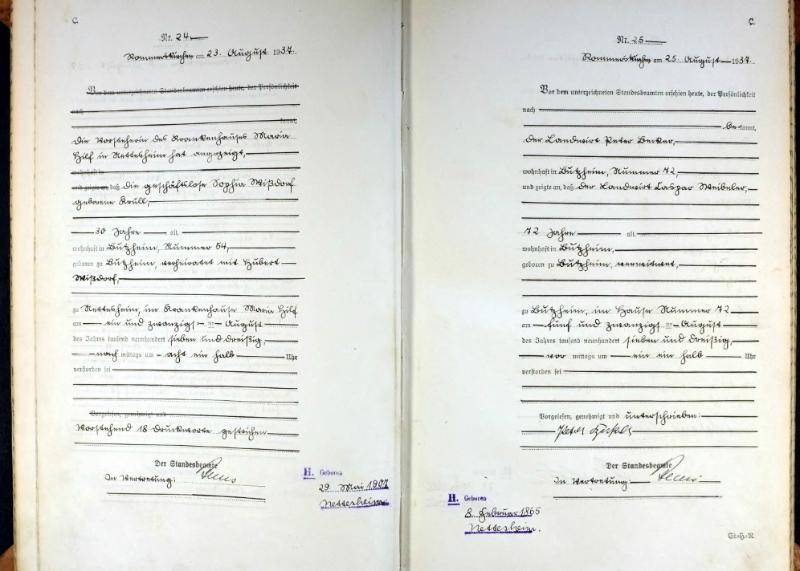 C.
Nr. 24
Rommerskirchen am 23. August 1937.
Vor dem unterzeichneten Standesbeamten erschien heute, der Persönlichkeit
nach
kannt,
Die Vorsteherin des Krankenhauses Maria
Hilf in Nettesheim hat angezeigt,
wohnhaft in
und zeigte an, daß die geschäftslose Sophia Wißdorf
geborene Krüll,
30 Jahre alt
wohnhaft in Butzheim, Nummer 64,
geboren zu Butzheim, verheiratet mit Hubert
Wißdorf,
zu Nettesheim, im Krankenhause Maria Hilf
am ein und zwanzigsten August
des Jahres tausend neunhundert sieben und dreißig,
nachmittags um acht ein halb Uhr
verstorben sei
Vorgelesen, genehmigt und
Vorstehend 18 Druckworte gestrichen.
Der Standesbeamte
In Vertretung:
H. Geboren
29 Mai 1907
Nettesheim
C.
Nr. 25
Rommerskirchen am 25. August 1937.
Vor dem unterzeichneten Standesbeamten erschien heute, der Persönlichkeit
nach
bekannt,
der Landwirt Peter Becker,
wohnhaft in Butzheim, Nummer 72,
und zeigte an, daß der Landwirt Caspar
72 Jahre alt
wohnhaft in Butzheim,
geboren zu Butzheim, verwitwet,
zu Butzheim, im Hause Nummer 72
am fünf und zwanzigsten August
des Jahres tausend neunhundert sieben und dreißig,
vormittags um ein ein halb Uhr
verstorben sei
Vorgelesen, genehmigt und unterschrieben.
Peter
Der Standesbeamte
In Vertretung:
H. Geboren
8. Februar 1865
Nettesheim.